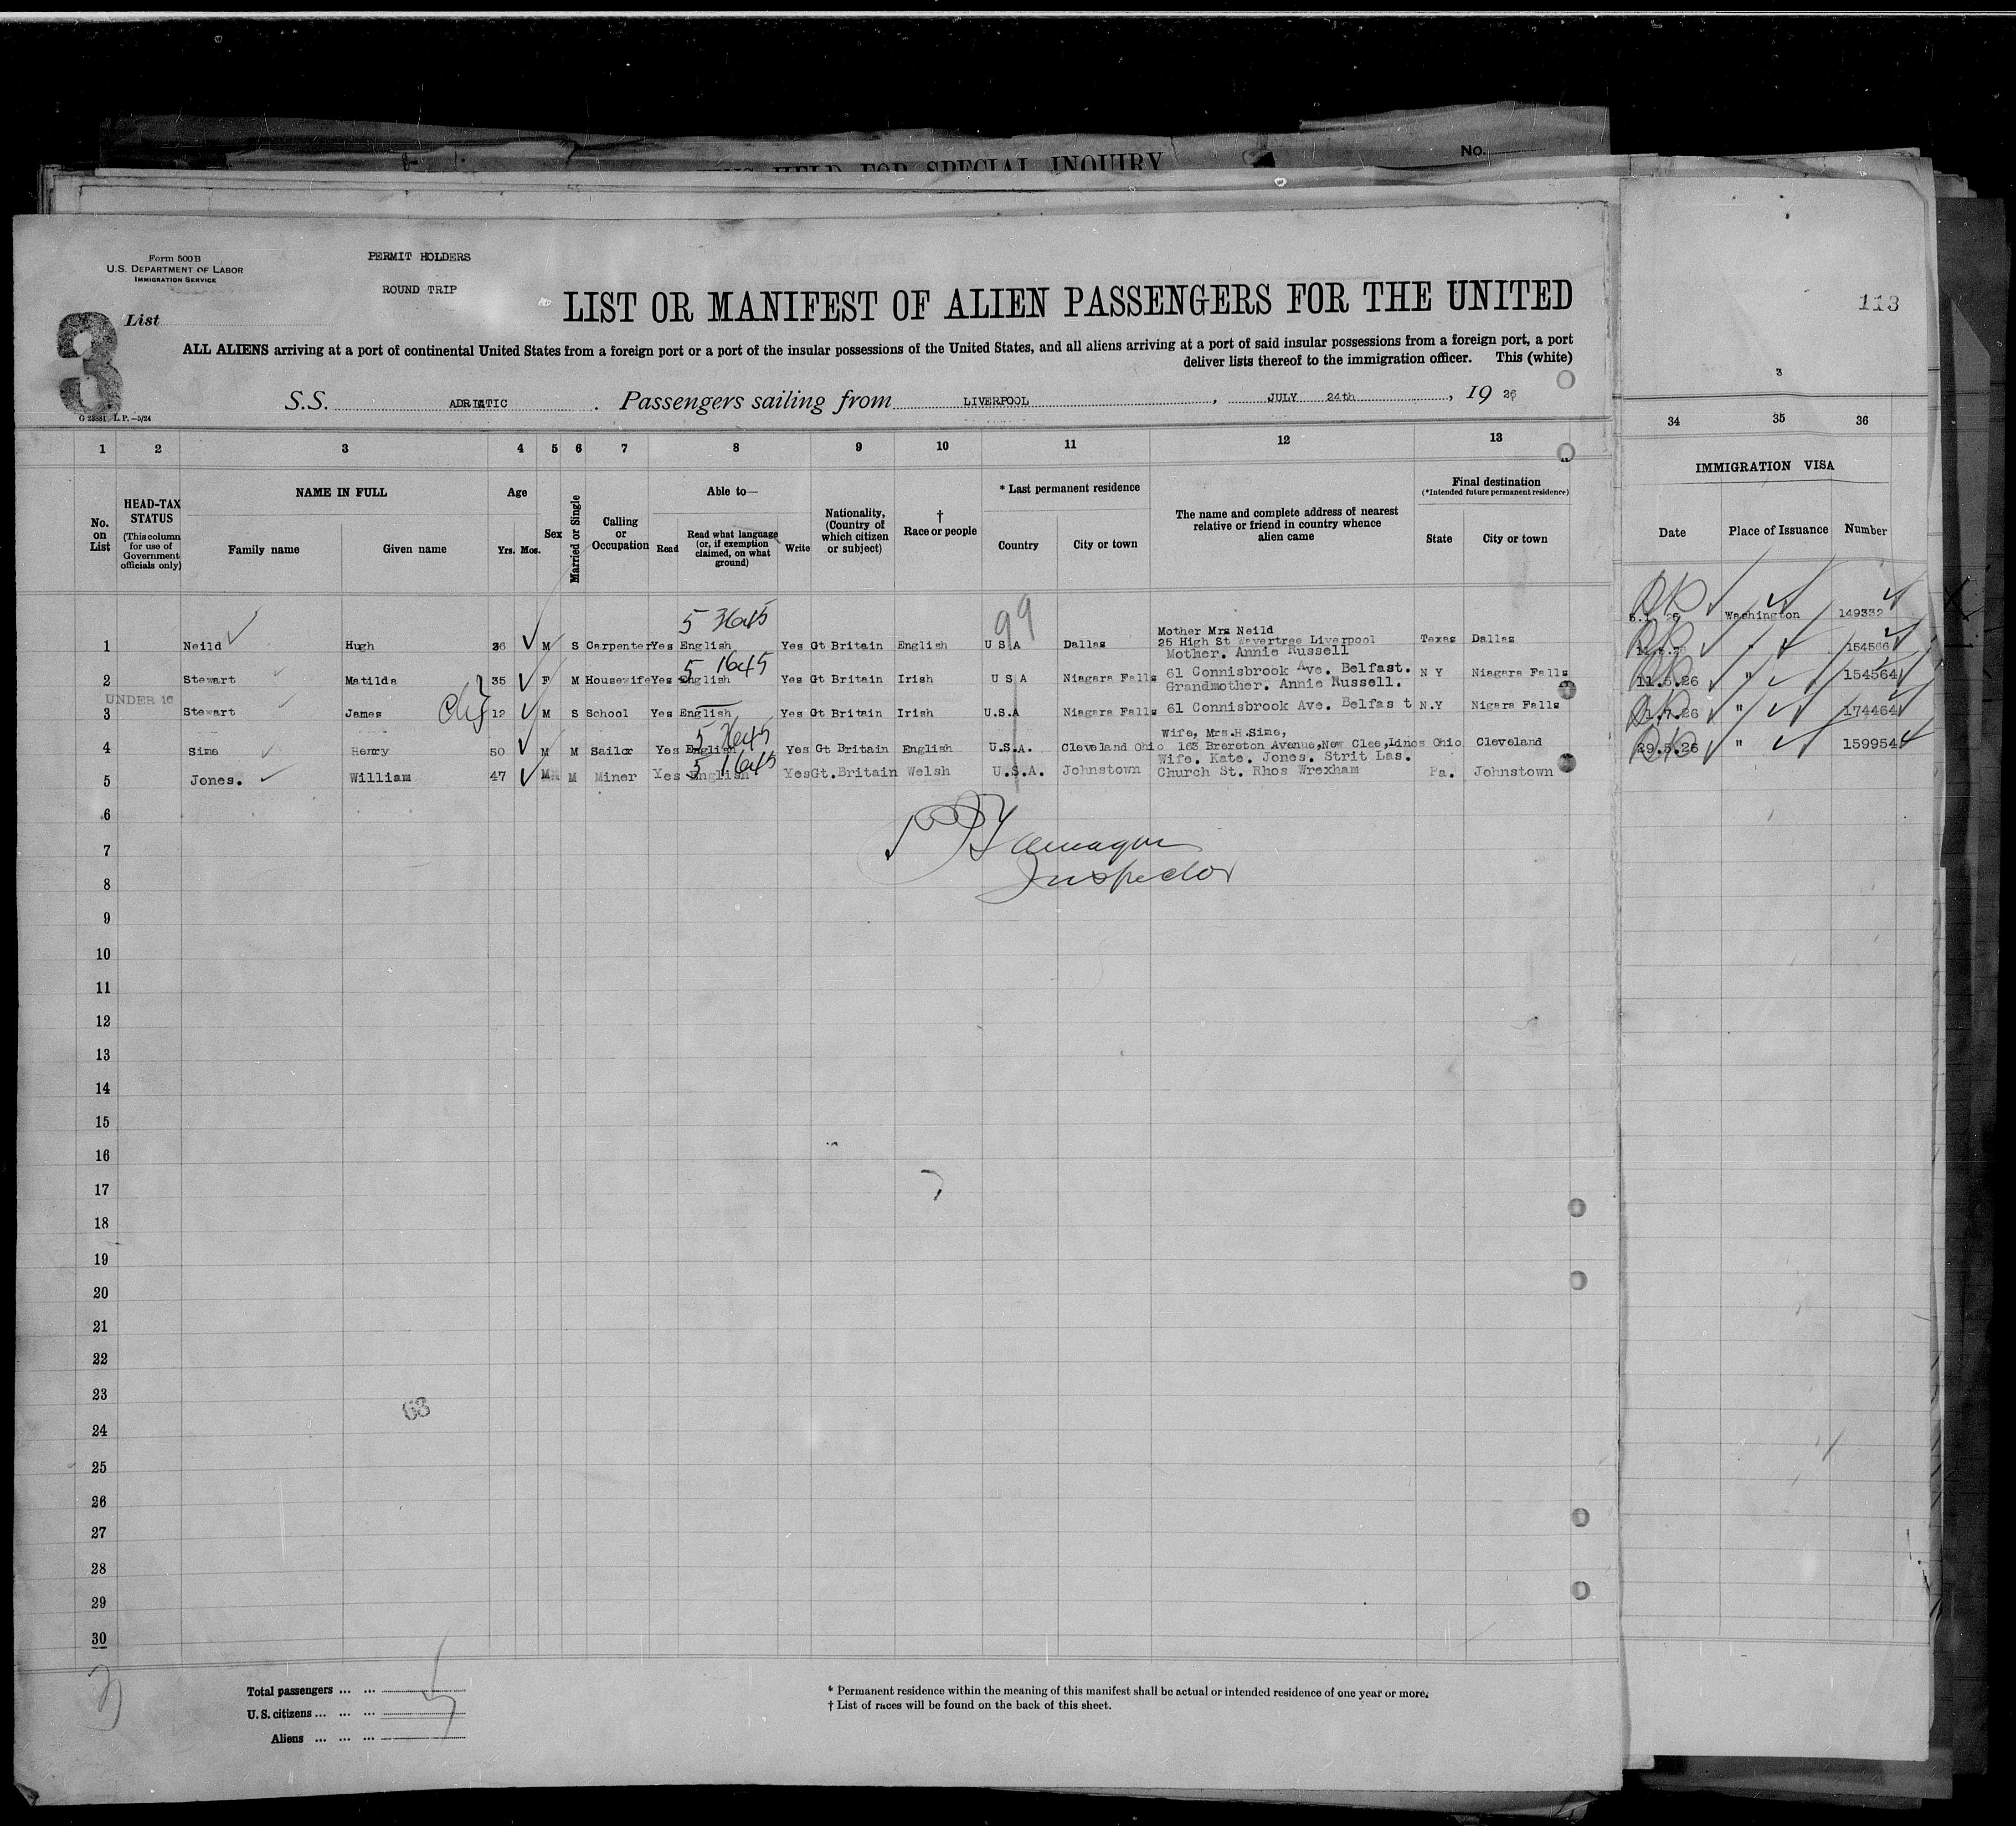 HELD FOR SPECIAL INQUIRY
No.
Form 500 B
U.S. DEPARTMENT OF LABOR
IMMIGRATION SERVICE
PERMIT HOLDERS
ROUND TRIP
3
List
LIST OR MANIFEST OF ALIEN PASSENGERS FOR THE UNITED
113
ALL ALIENS arriving at a port of continental United States from a foreign port or a port of the insular possessions of the United States, and all aliens arriving at a port of said insular possessions from a foreign port, a port
deliver lists thereof to the immigration officer. This (white)
3
S.S. ADRIATIC. Passengers sailing from LIVERPOOL, JULY 24th, 19 26
L.P.—5/24
1 2 3 4 5 6 7 8 9 10 11 12 13 34 35 36
No. on List
HEAD-TAX STATUS
(This column for use of Government officials only)
NAME IN FULL
Family name Given name
Age
Yrs. Mos.
Sex
Married or Single
Calling or Occupation
Able to—
Read
Read what language (or, if exemption claimed, on what ground)
Write
Nationality, (Country of which citizen or subject)
† Race or people
* Last permanent residence
Country City or town
The name and complete address of nearest relative or friend in country whence alien came
Final destination
(*Intended future permanent residence)
State City or town
IMMIGRATION VISA
Date Place of Issuance Number
5 3645
99
Washington 149332
Mother Mrs Neild
1 Neild Hugh 36 M S Carpenter Yes English Yes Gt Britain English U S A Dallas 25 High St Wavertree Liverpool Texas Dallas
" 154566
5 1645
Mother. Annie Russell
2 Stewart Matilda 35 F M Housewife Yes English Yes Gt Britain Irish U S A Niagara Falls 61 Connisbrook Ave. Belfast. N Y Niagara Falls
11.5.26 " 154564
UNDER 16
Grandmother. Annie Russell.
3 Stewart James 12 M S School Yes English Yes Gt Britain Irish U.S.A Niagara Falls 61 Connisbrook Ave. Belfas t N.Y Nigara Falls
1.7.26 " 174464
Wife, Mrs.H.Sime,
4 Sime Henry 50 M M Sailor Yes English Yes Gt Britain English U.S.A. Cleveland Ohio 163 Brereton Avenue,New Clee,Lincs Ohio Cleveland
29.5.26 " 159954
5 1645
Wife. Kate. Jones. Strit Las.
5 Jones. William 47 M M Miner Yes English Yes Gt.Britain Welsh U.S.A. Johnstown Church St. Rhos Wrexham Pa. Johnstown
6
7
Inspector
8
9
10
11
12
13
14
15
16
17
18
19
20
21
22
23
63
24
25
26
27
28
29
30
Total passengers ... ... 5
U.S. citizens ... ... ...
Aliens ... ... ...
* Permanent residence within the meaning of this manifest shall be actual or intended residence of one year or more.
† List of races will be found on the back of this sheet.